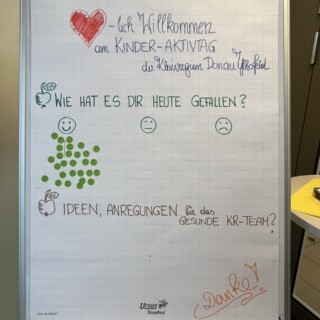 -lich Willkommen
am KINDER-AKTIVTAG
der Kleinregion Donau Ybbsfeld
WIE HAT ES DIR HEUTE GEFALLEN?
IDEEN, ANREGUNGEN für das
GESUNDE KR-TEAM?
Danke!